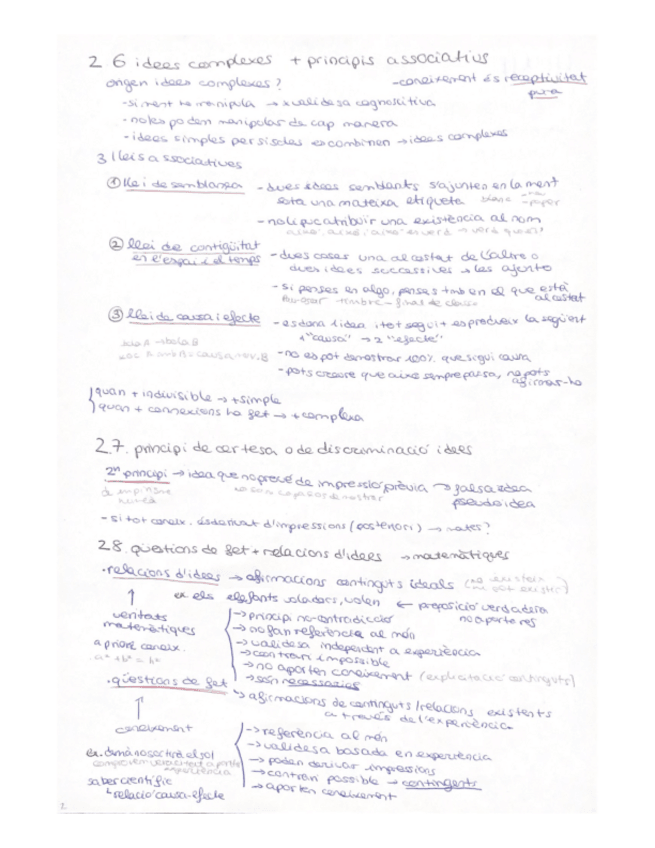 2 6 idees complexes + principis associatius
origen idees complexes?
-coneixement és receptivitat pura
-si ment ho manipula → x validesa cognoscitiva
-no les podem manipular de cap manera
-idees simples per si soles ↔ combinen → idees complexes
3 lleis associatives
① llei de semblança - dues idees semblants s'ajunten en la ment
sota una mateixa etiqueta
- no li puc atribuir una existència al nom
② llei de contigüitat en l'espai i el temps - dues coses una al costat de l'altre o
dues idees successives → les ajunto
- si penses en algo, penses tmb en el que està al costat
③ llei de causa i efecte - es dona 1 idea i tot seguit es produeix la següent
1 "causa" → 2 "efecte"
- no es pot demostrar 100% que sigui causa
- pots creure que això sempre passa, no pots afirmar-ho
quan + indivisible → + simple
quan + connexions ho fet → + complexa
2.7. principi de certesa o de discriminació idees
2n principi → idea que no prové de impressió prèvia → falsa idea
pseudoidea
- si tot coneix. és derivat d'impressions (posteriori) → mates?
2.8. qüestions de fet + relacions d'idees → matemàtiques
·relacions d'idees → afirmacions continguts ideals
ex els elefants voladors, volen ← proposició verdadera
no aporta res
veritats matemàtiques
a priori coneix.
→ principi no-contradicció
→ no fan referència al món
→ validesa independent a experiència
→ contrari impossible
→ no aporten coneixement (explicitació continguts)
→ són necessaries
·qüestions de fet
↳ afirmacions de continguts/relacions existents
a través de l'experiència
coneixement
ex. demà no sortirà el sol
saber científic
↳ relació causa-efecte
→ referència al món
→ validesa basada en experiència
→ poden derivar impressions
→ contrari possible → contingents
→ aporten coneixement
2.